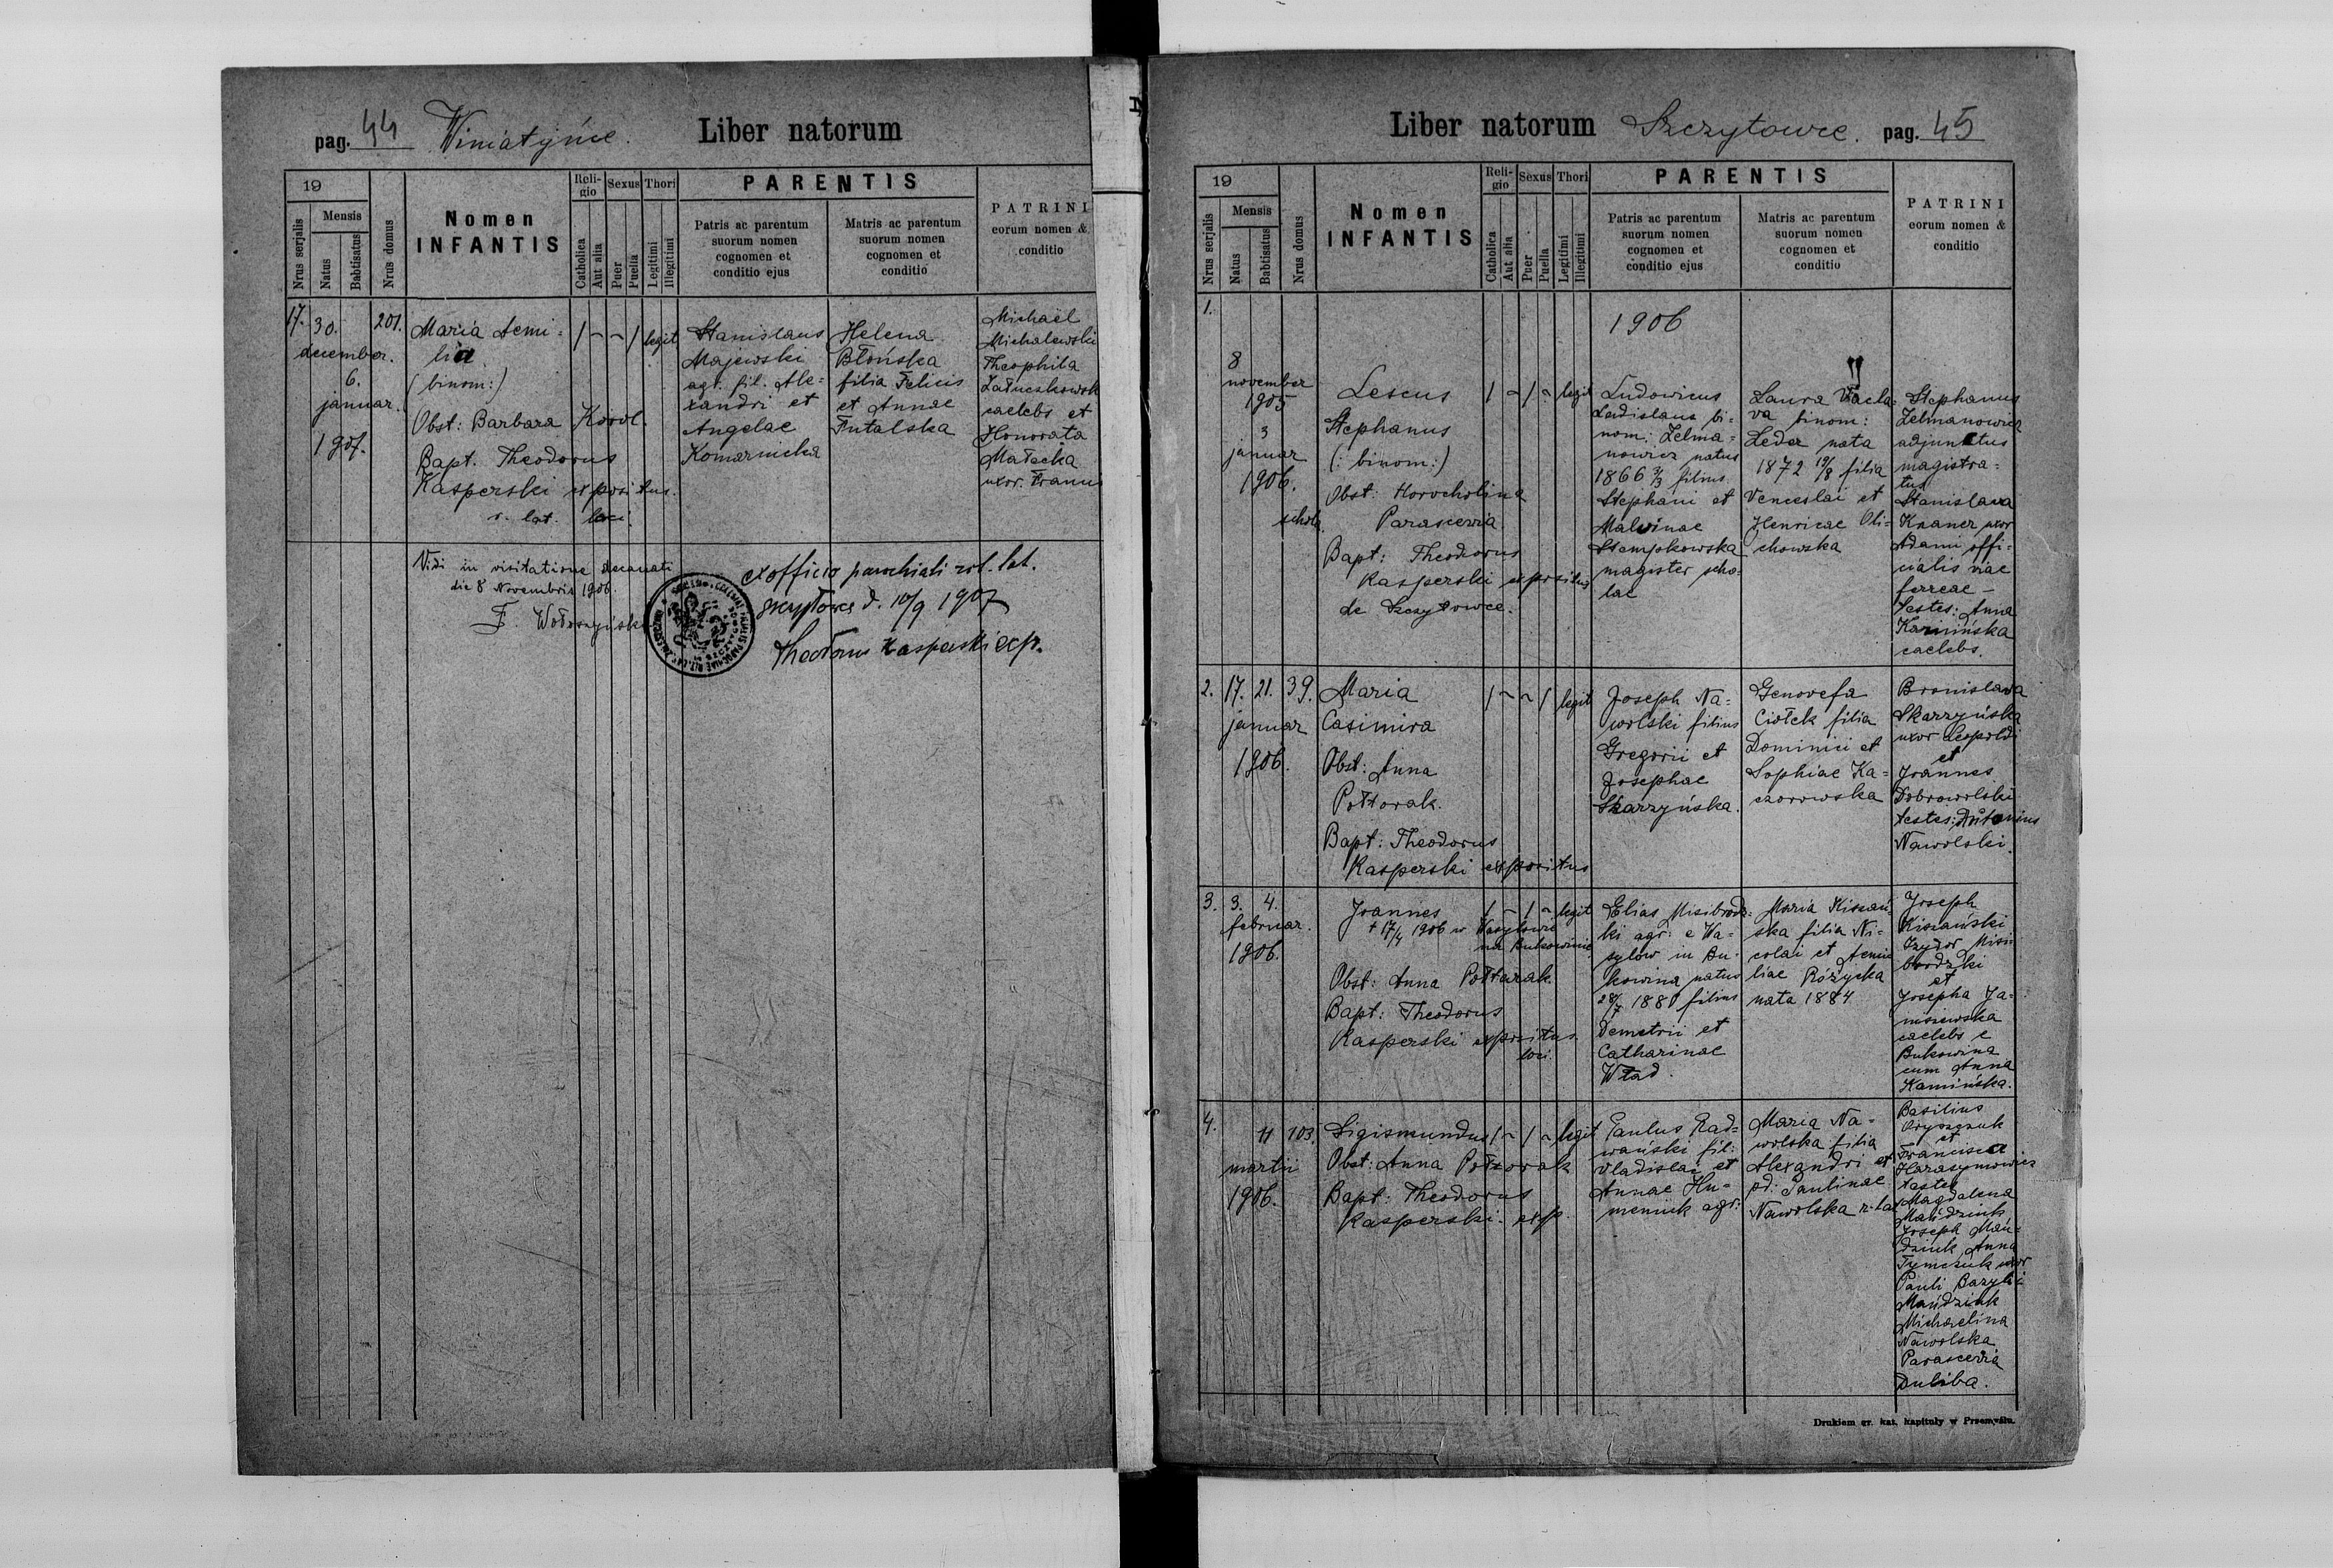 pag. 44 Winiatyńce. Liber natorum
19
Nrus serjalis
Mensis
Natus
Babtisatus
Nrus domus
Nomen
INFANTIS
Reli-
gio
Catholica
Aut alia
Sexus
Puer
Puella
Thori
Legitimi
Illegitimi
PARENTIS
Patris ac parentum
suorum nomen
cognomen et
conditio ejus
Matris ac parentum
suorum nomen
cognomen et
conditio
PATRINI
eorum nomen &
conditio
17. 30. 201.
december.
6.
januar.
1907.
Maria Aemi=
lia
(binom:)
Obst: Barbara Korol.
Bapt. Theodorus
Kasperski expositus.
r. lat. loci.
/ ~ ~ / legit
Stanislaus
Majewski
agr. fil. Ale=
xandri et
Angelae
Komarnicka
Helena
Błońska
filia Felicis
et Annae
Futalska
Michaël
Michalewski
Theophila
caelebs et
Honorata
Małecka
uxor.
Vidi in visitatione decanali
die 8 Novembris 1906.
F. Wołoszyński
ex officio parochiali rit. lat.
d. 10/9 1907
Theodorus Kasperski exp.
Liber natorum Szczytowce. pag. 45
19
Nrus serjalis
Mensis
Natus
Babtisatus
Nrus domus
Nomen
INFANTIS
Reli-
gio
Catholica
Aut alia
Sexus
Puer
Puella
Thori
Legitimi
Illegitimi
PARENTIS
Patris ac parentum
suorum nomen
cognomen et
conditio ejus
Matris ac parentum
suorum nomen
cognomen et
conditio
PATRINI
eorum nomen &
conditio
1.
1906
8
november
1905
3
januar
1906.
schola.
Lescus
Stephanus
(: binom:)
Obst: Horocholina
Parascevia
Bapt: Theodorus
Kasperski expositus
de Szczytowce.
/ ~ / ~ legit
Ludovicus
Ladislaus bi-
nom: Zelma=
nowicz natus
1866 3/3 filius
Stephani et
Malvinae
Stempkowska
magister scho-
lae
Laura Vacla=
va binom:
Leder nata
1872 19/8 filia
Venceslai et
Henricae Oli=
chowska
Stephanus
Zelmanowicz
adjunctus
magistra=
tus
Stanislava
Knaner uxor
Adami offi-
cialis viae
ferreae –
Testes: Anna
Kamińska
caelebs.
2. 17. 21. 39.
januar
1906.
Maria
Casimira
Obst: Anna
Półtorak.
Bapt: Theodorus
Kasperski expositus
/ ~ ~ / legit
Joseph Na=
wolski filius
Gregorii et
Josephae
Skarzyńska.
Genovefa
Ciołek filia
Dominici et
Sophiae Ka=
czorowska
Bronislava
Skarzyńska
uxor Leopoldi
et
Joannes
Dobrowolski
testes: Antonius
Nawolski.
3. 3. 4.
februar.
1906.
Joannes
+ 17/4 1906 w Wasylowie
na Bukowinie
Obst: Anna Półtorak.
Bapt: Theodorus
Kasperski expositus
loci.
/ ~ / ~ legit
Elias Misibrodz=
ki agr: e Wa=
sylów in Bu-
kowina natus
28/7 1881 filius
Demetrii et
Catharinae
Wład.
Maria Kiszań
ska filia Ni=
colai et Aemi
liae Różycka
nata 1884
Joseph
Kiszański
Izydor Misi
brodzki
et
Josepha Ja=
niszewska
caelebs e
Bukowina
cum Anna
Kamińska.
4. 11 103.
martii
1906.
Sigismundus
Obst: Anna Półtorak
Bapt: Theodorus
Kasperski. exp.
/ ~ / ~ legit
Paulus Rad=
wański fil:
Vladislai et
Annae Hu=
meniuk agr:
Maria Na-
wolska filia
Alexandri et
pd: Paulinae
Nawolska r. lat
Basilius
et
Francisca
Harasymowicz
testes
Magdalena
Mandziuk
Joseph Man=
dziuk, Anna
Tymczuk uxor
Pauli Bazyli
Mandziuk
Michaelina
Nawolska
Parascevia
Duliba.
Drukiem gr. kat. kapituły w Przemyślu.